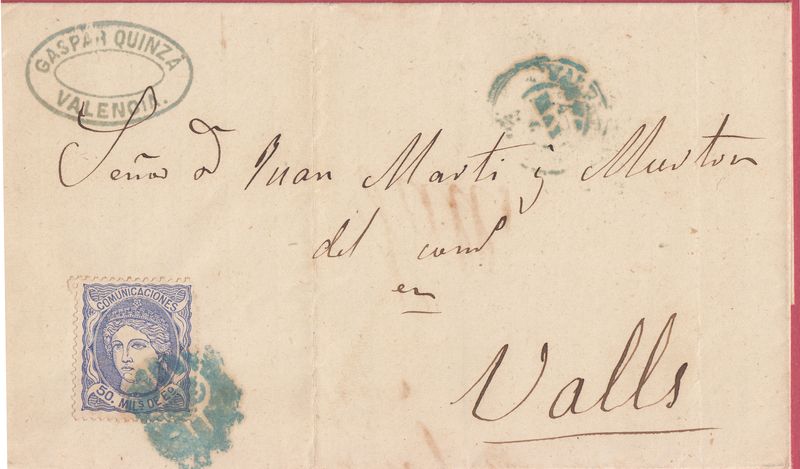 GASPAR QUINZÁ
VALENCIA.
VALE
Señor Dn Juan Marti y
del com
en
Valls
COMUNICACIONES
50. MILS DE E.